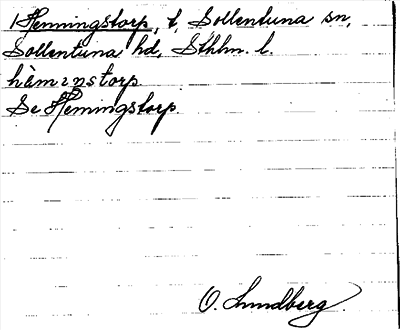 1 Henningstorp, t, Sollentuna sn,
Sollentuna hd, Sthlm. l.
hàmınstorp.
Se Hemingstorp.
O. Lundberg.